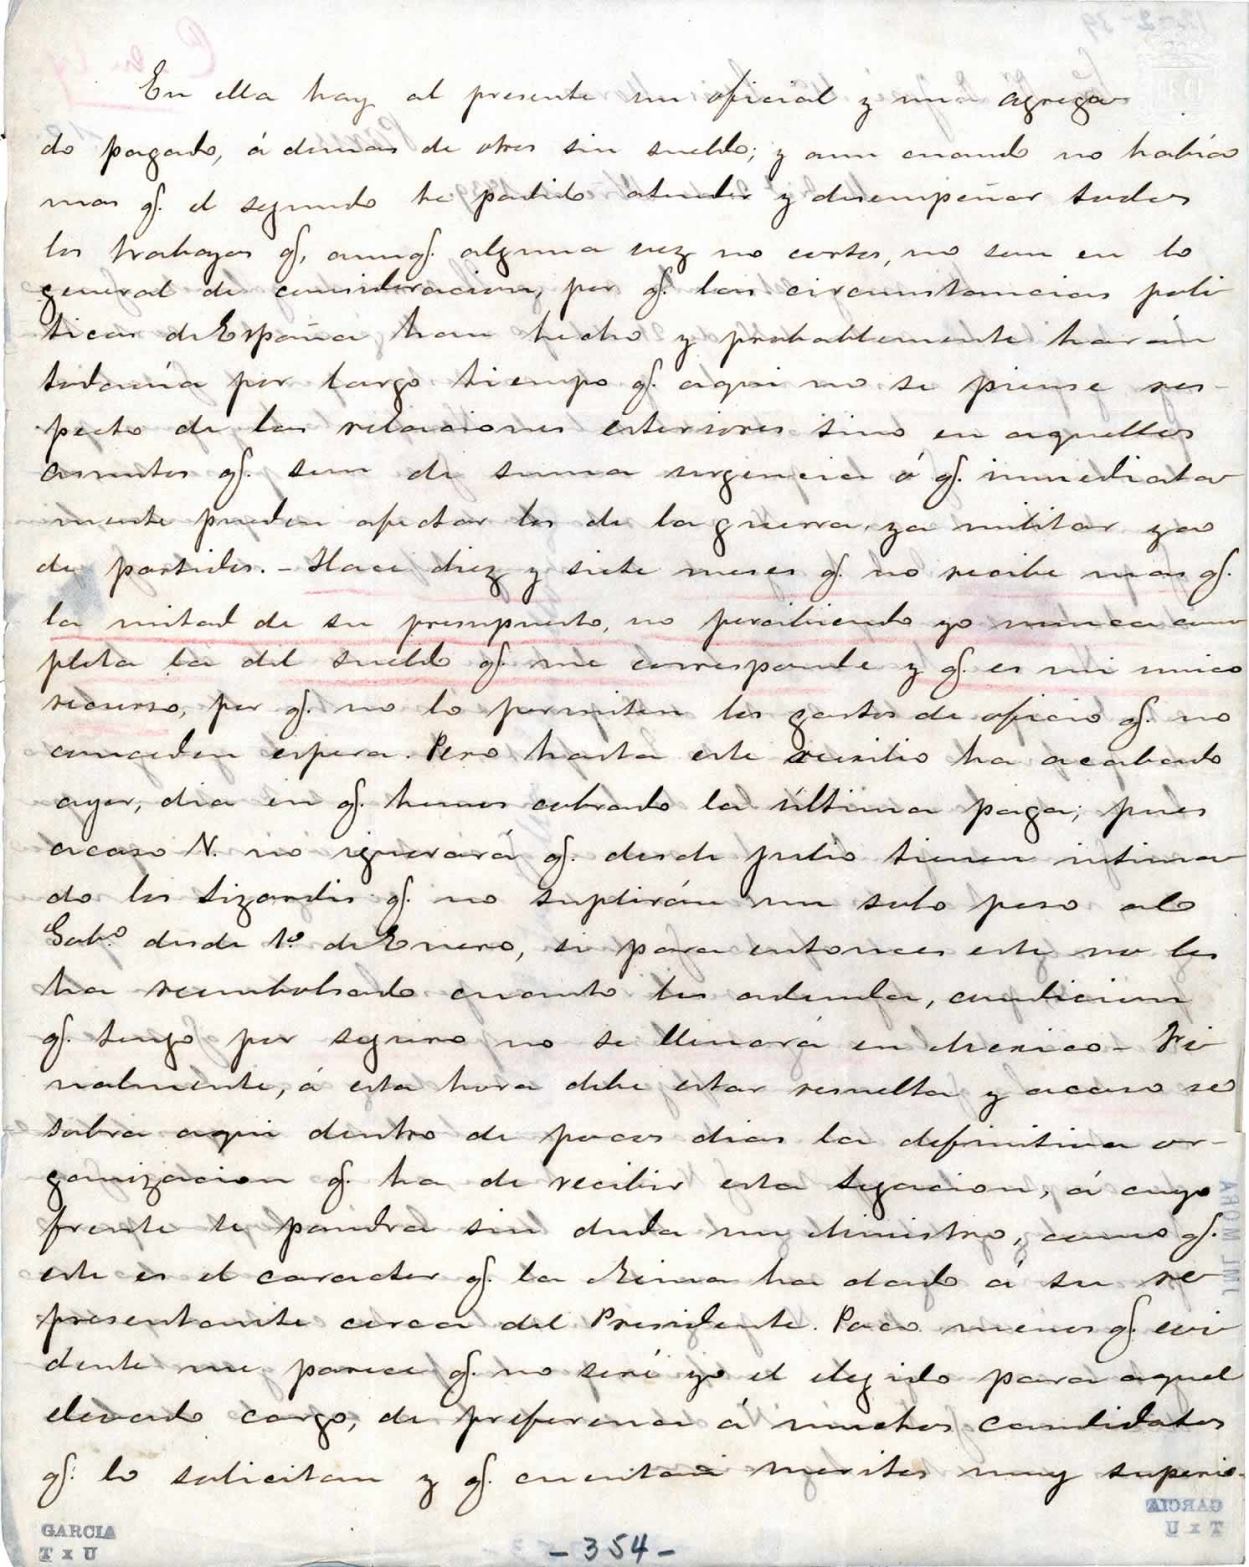 En ella hay al presente un oficial y un agrega
do pagado, á demas de otros sin sueldo; y aun cuando no había
mas q. el segundo ha podido atender y desempeñar todos
los trabajos q. aunq. alguna vez no cortos, no son en lo
general de consideracion, por q. las circunstancias polí
ticas de España han hecho y probablemente harán
todavía por largo tiempo q. aqui no se piense res-
pecto de las relaciones esteriores sino en aquellos
asuntos q. son de suma urgencia ó q. inmediata
mente pueden afectar los de la guerra, ya militar ya
de partidos. - Hace diez y siete meses q. no recibe mas q.
la mitad de su presupuesto, no percibiendo yo nunca com
pleta la del sueldo q. me corresponde y q. es mi unico
recurso, por q. no lo permiten los gastos de oficio q. no
conceden espera. Pero hasta este ausilio ha acabado
ayer, dia en q. hemos cobrado la última paga; pues
acaso V. no ignorará q. desde Julio tienen intima
do los Lizardis q. no suplirán un solo peso al
Gob.º desde 1º de Enero, si para entonces este no les
ha reembolsado cuanto les adeuda, condicion
q. tengo por seguro no se llenará en Mexico - Fi
nalmente, á esta hora debe estar resuelta y acaso se
sabra aqui dentro de pocos dias la definitiva or-
ganizacion q. ha de recibir esta Legacion, á cuyo
frente se pondra sin duda un Ministro, como q.
este es el caracter q. la Reina ha dado á su re
presentante cerca del Presidente. Poco menos q. evi
dente me parece q. no seré yo el elegido para aquel
elevado cargo, de preferencia á muchos candidatos
q. lo solicitan y q. cuentan meritos muy superio-
GARCIA
T x U
- 354 -